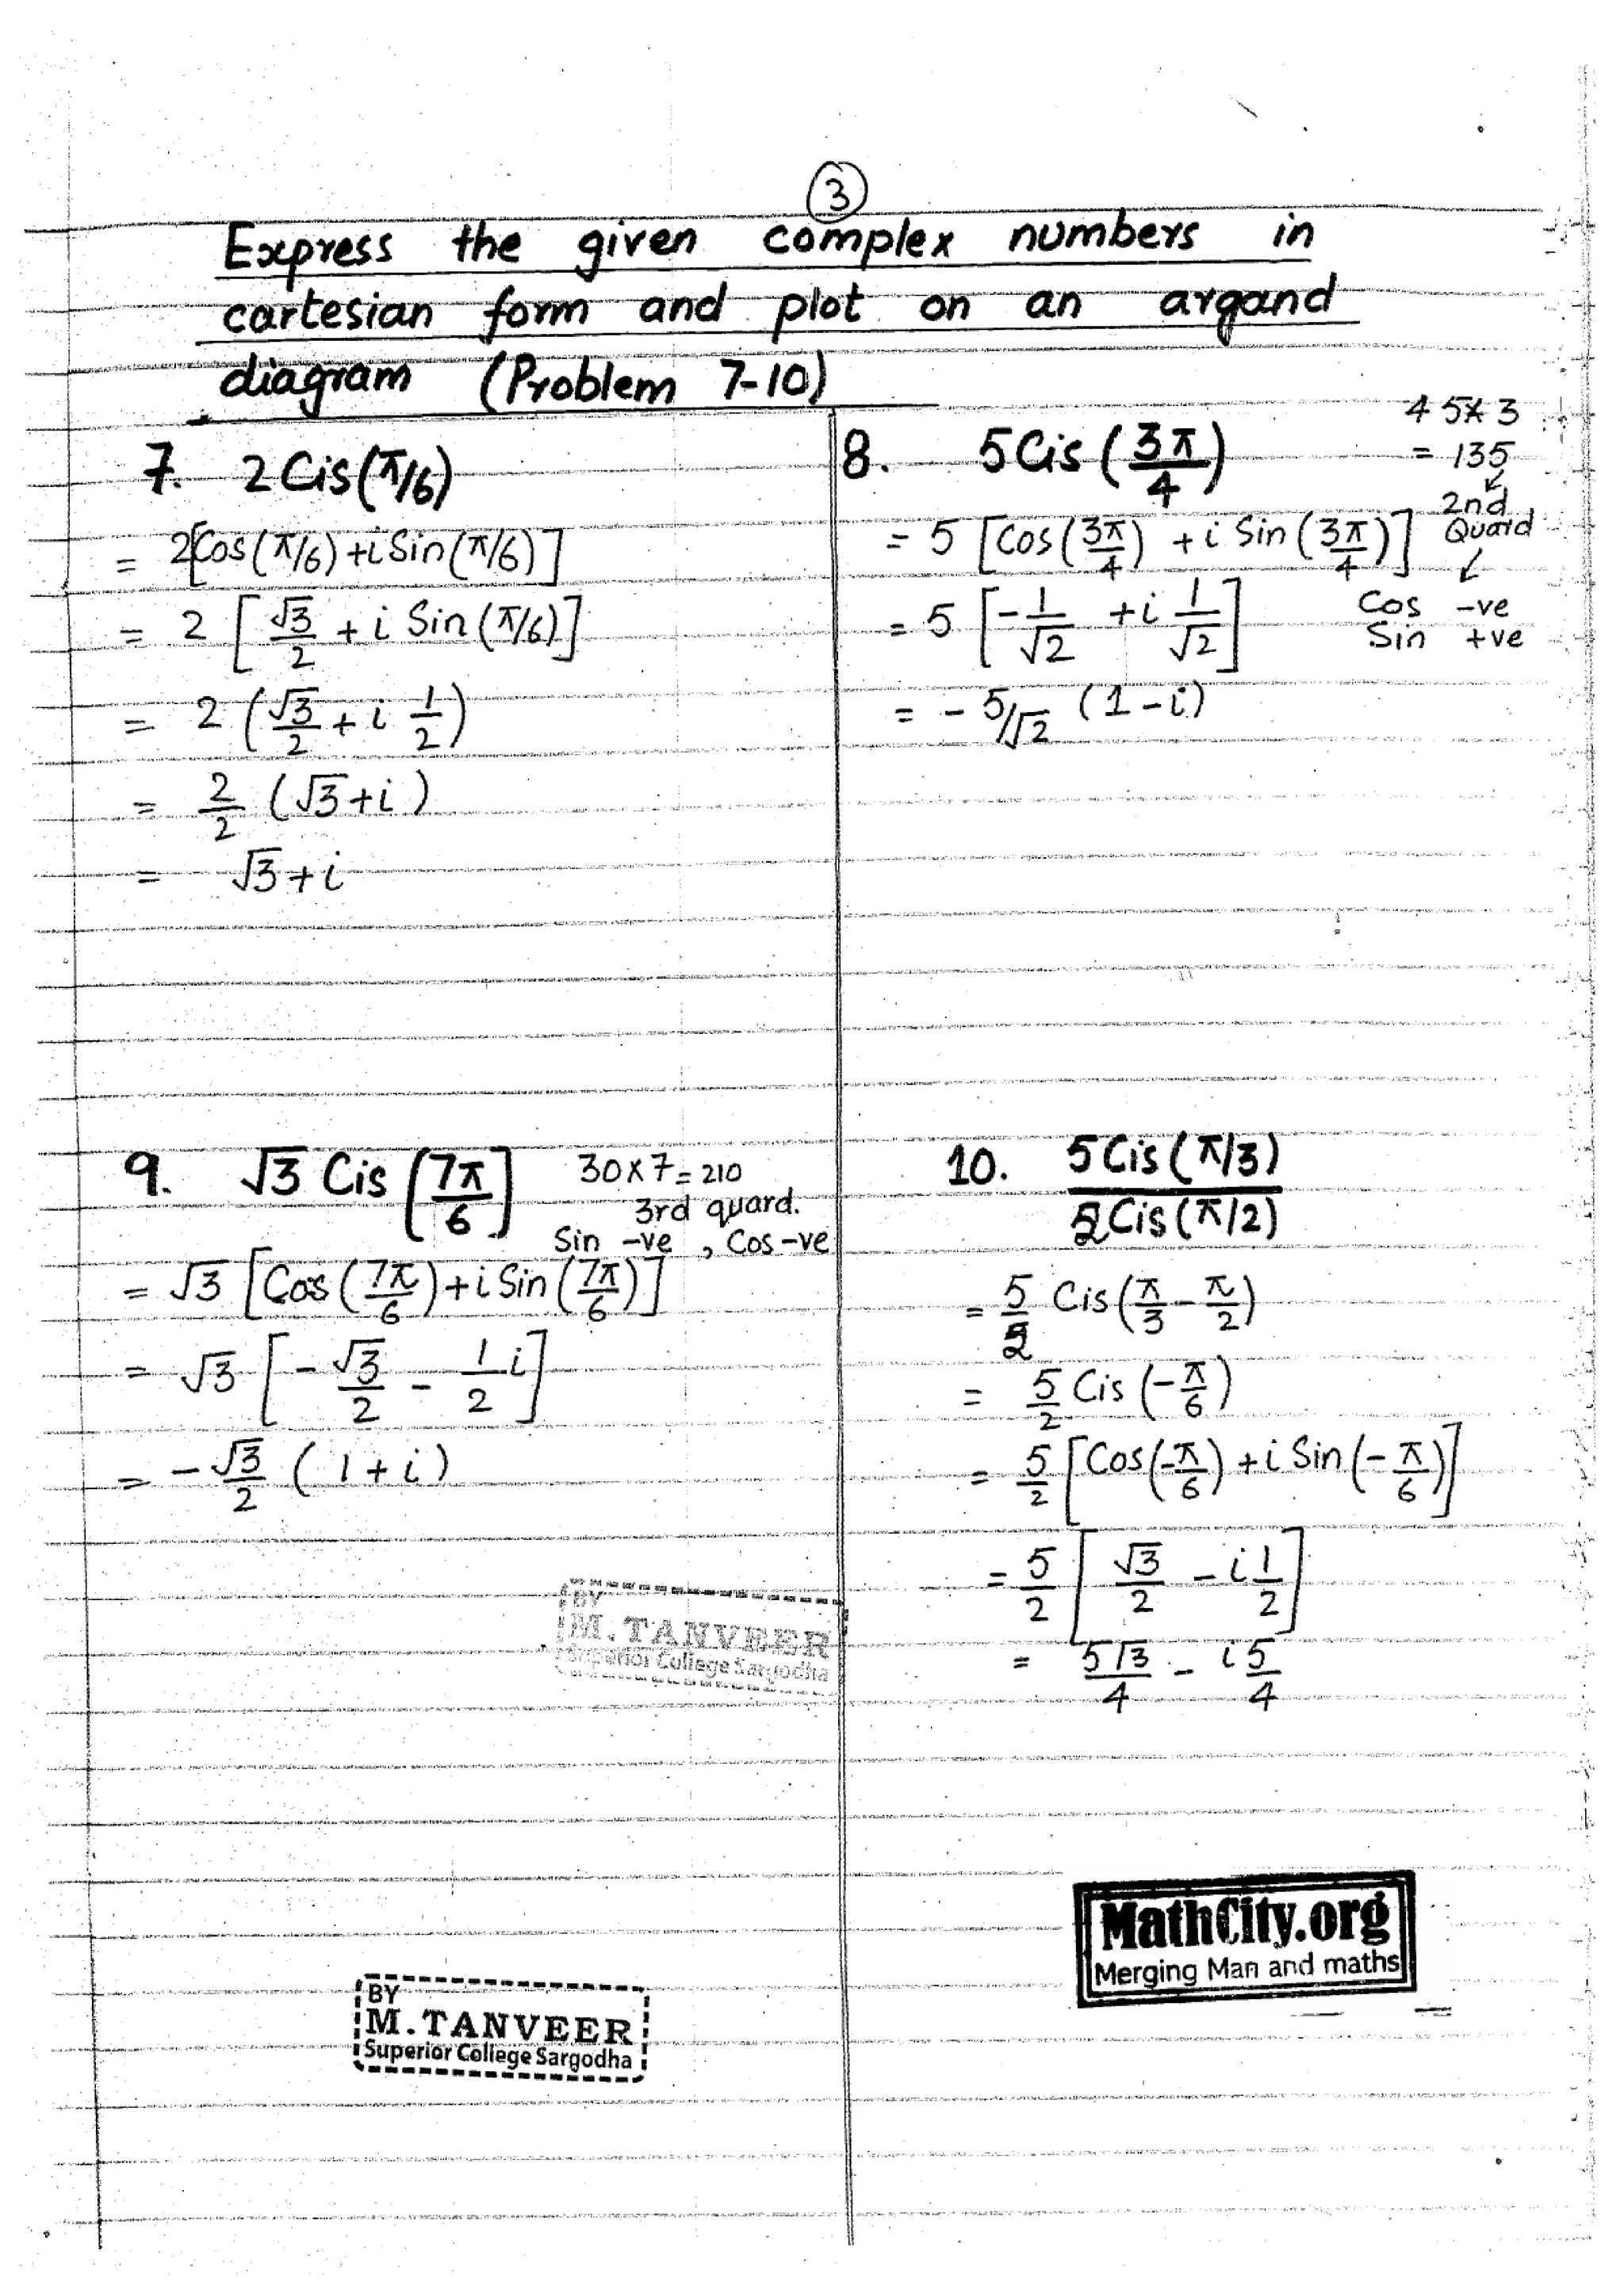 3
Express the given complex numbers in
cartesian form and plot on an argand
diagram (Problem 7-10)
7. 2 Cis(π/6)
= 2[Cos(π/6)+i Sin(π/6)]
= 2 [√3/2 + i Sin(π/6)]
= 2 (√3/2 + i 1/2)
= 2/2 (√3+i)
= √3+i
8. 5 Cis (3π/4)
45×3
= 135
2nd
Quard
= 5 [Cos(3π/4) + i Sin(3π/4)]
Cos -ve
Sin +ve
= 5 [-1/√2 + i 1/√2]
= - 5/√2 (1-i)
9. √3 Cis [7π/6]
30×7=210
3rd quard.
Sin -ve , Cos -ve
= √3 [Cos(7π/6)+i Sin(7π/6)]
= √3 [-√3/2 - 1/2 i]
= -√3/2 (1+i)
10. 5 Cis(π/3) / 2 Cis(π/2)
= 5/2 Cis(π/3 - π/2)
= 5/2 Cis (-π/6)
= 5/2 [Cos(-π/6) + i Sin(-π/6)]
= 5/2 [√3/2 - i 1/2]
= 5√3/4 - i 5/4
BY
M.TANVEER
Superior College Sargodha
MathCity.org
Merging Man and maths
BY
M.TANVEER
Superior College Sargodha